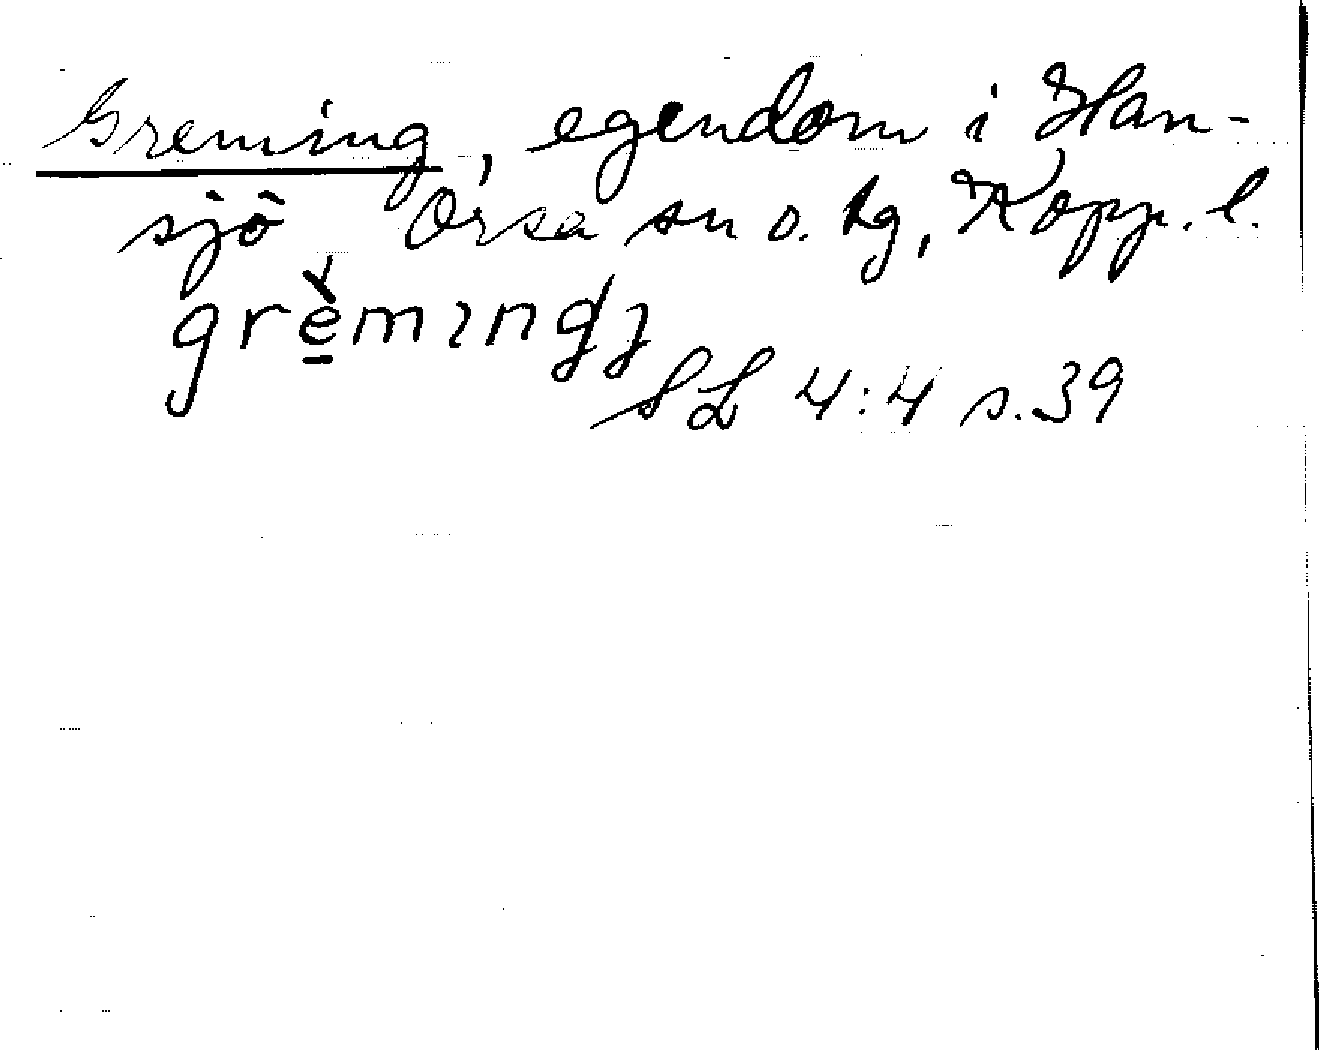 Greming, egendom i Han-
sjö Orsa sn o. tg, Kopp. l.
grèmıng
SL 4:4 s. 39